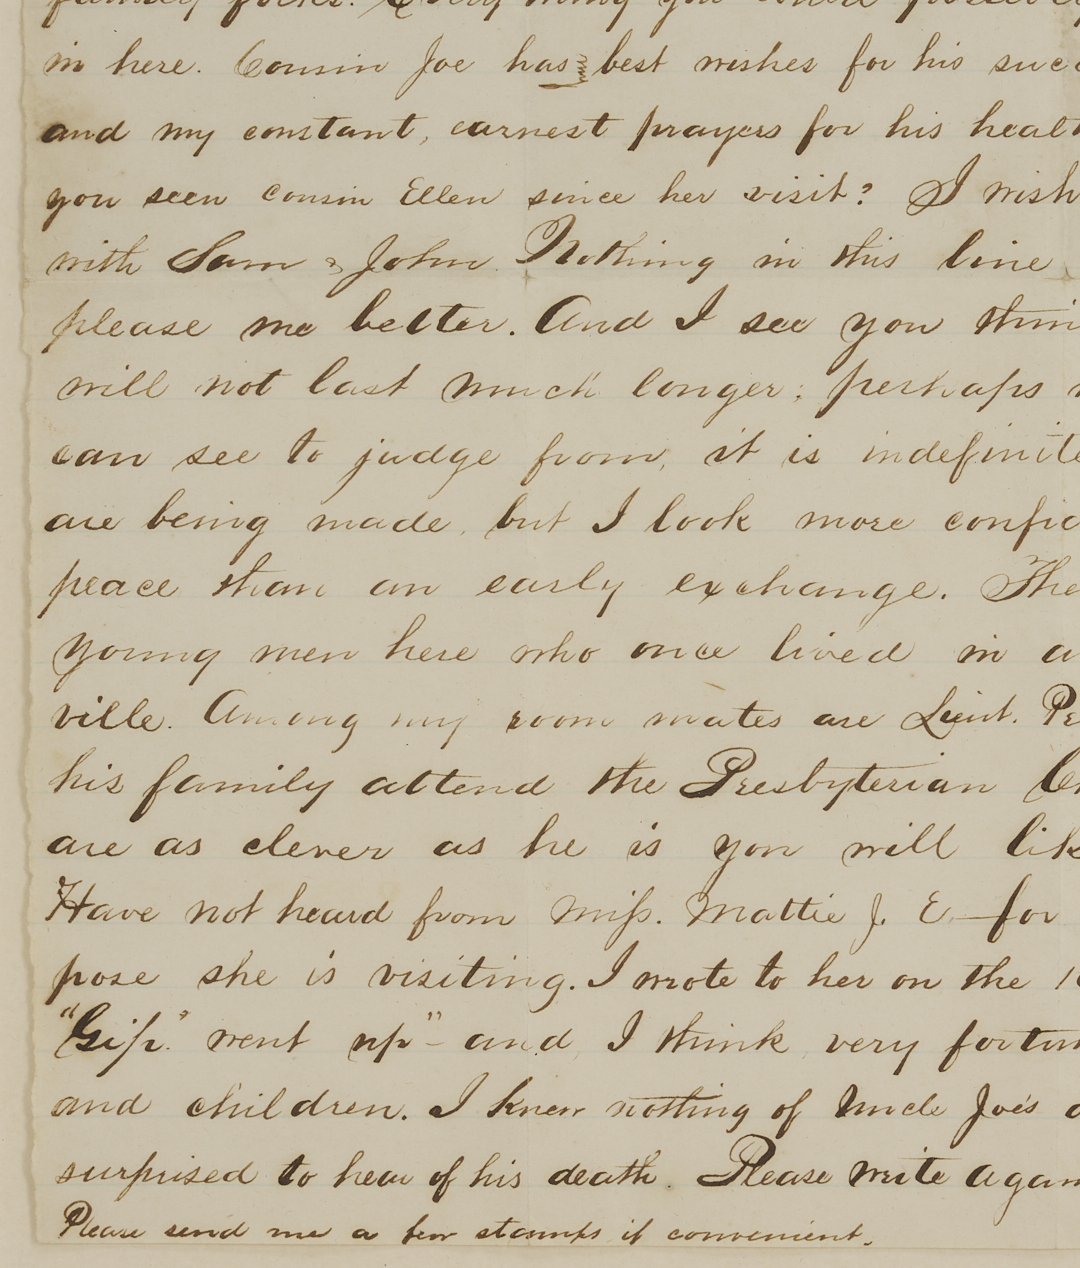 family folks. Every thing you could
in here. Cousin Joe has my best wishes for his succ
and my constant, earnest prayers for his healt
you seen cousin Ellen since her visit? I wish
with Sam & John. Nothing in this line
please me better. And I see you thin
will not last much longer; perhaps n
can see to judge from, it is indefinite
are being made, but I look more confid
peace than an early exchange. The
young men here who once lived in a
ville. Among my room mates are Lieut. Pe
his family attend the Presbyterian Ch
are as clever as he is you will lik
Have not heard from Miss. Mattie J. E. for
pose she is visiting. I wrote to her on the 1
"Gip." went up" - and, I think, very fortun
and children. I knew nothing of Uncle Joe's d
surprised to hear of his death. Please write again
Please send me a few stamps if convenient.